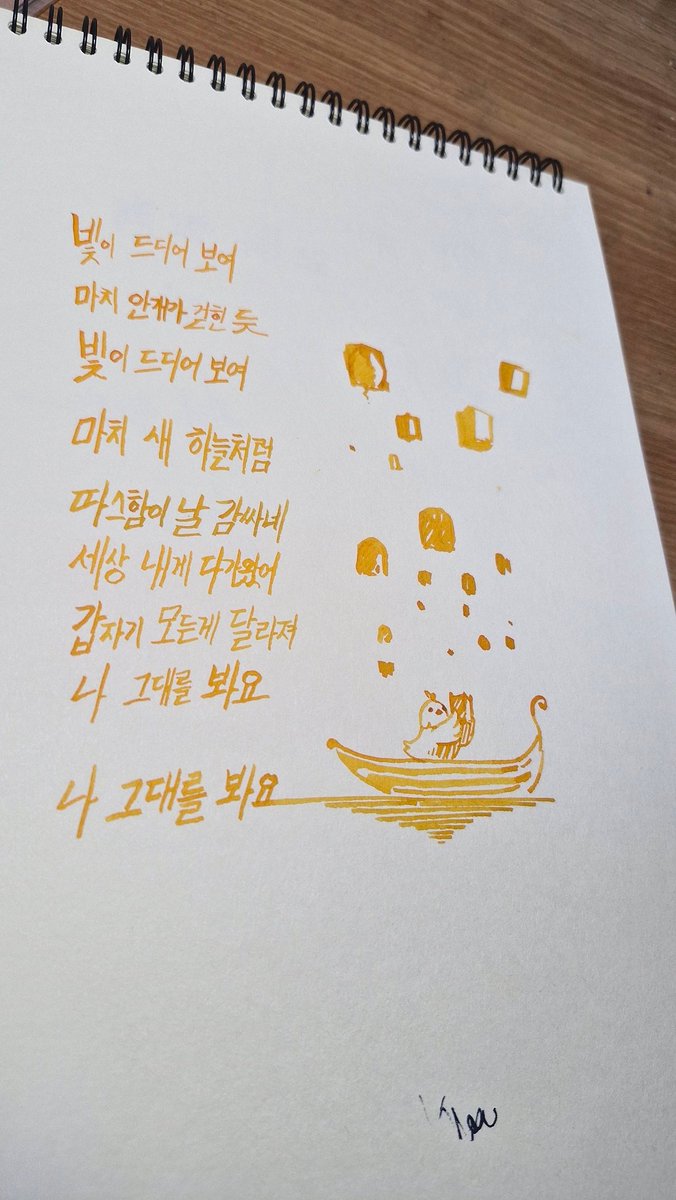 빛이 드디어 보여
마치 안개가 걷힌 듯
빛이 드디어 보여
마치 새 하늘처럼
따스함이 날 감싸네
세상 내게 다가왔어
갑자기 모든게 달라져
나 그대를 봐요
나 그대를 봐요